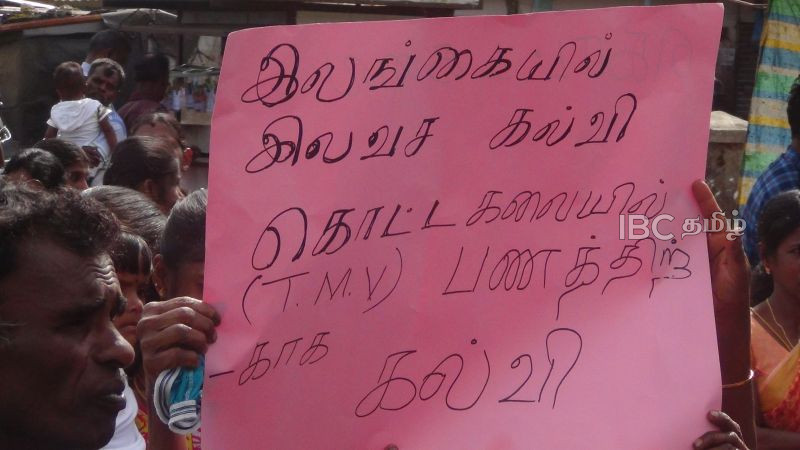 இலங்கையில்
இலவச கல்வி
கொட்டகலையில்
(T.M.V) பணத்திற்
-காக
கல்வி
IBC தமிழ்